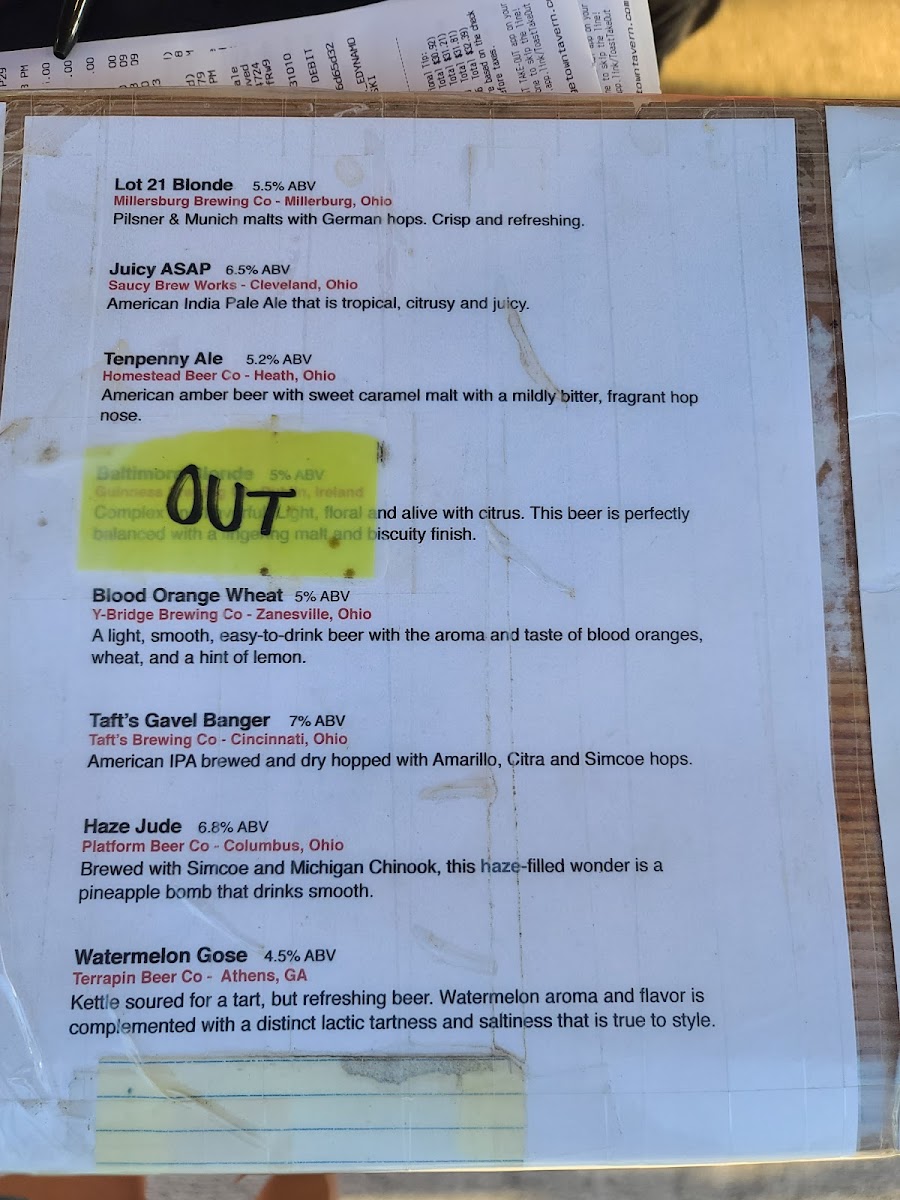 onal Tip:
Total $30.92)
Total $31.21)
Total $31.81)
Total $32.39)
based on the check
fore taxes.
DEBIT
31010
4724
79
PM
.00
.00
.00
00
09
09
getowntavern.c
Lot 21 Blonde 5.5% ABV
Millersburg Brewing Co - Millerburg, Ohio
Pilsner & Munich malts with German hops. Crisp and refreshing.
Juicy ASAP 6.5% ABV
Saucy Brew Works - Cleveland, Ohio
American India Pale Ale that is tropical, citrusy and juicy.
Tenpenny Ale 5.2% ABV
Homestead Beer Co - Heath, Ohio
American amber beer with sweet caramel malt with a mildly bitter, fragrant hop
nose.
Baltimore Blonde 5% ABV
OUT
Guinness Ireland
Complex Light, floral and alive with citrus. This beer is perfectly
balanced with a lingering malt and biscuity finish.
Blood Orange Wheat 5% ABV
Y-Bridge Brewing Co - Zanesville, Ohio
A light, smooth, easy-to-drink beer with the aroma and taste of blood oranges,
wheat, and a hint of lemon.
Taft's Gavel Banger 7% ABV
Taft's Brewing Co - Cincinnati, Ohio
American IPA brewed and dry hopped with Amarillo, Citra and Simcoe hops.
Haze Jude 6.8% ABV
Platform Beer Co - Columbus, Ohio
Brewed with Simcoe and Michigan Chinook, this haze-filled wonder is a
pineapple bomb that drinks smooth.
Watermelon Gose 4.5% ABV
Terrapin Beer Co - Athens, GA
Kettle soured for a tart, but refreshing beer. Watermelon aroma and flavor is
complemented with a distinct lactic tartness and saltiness that is true to style.